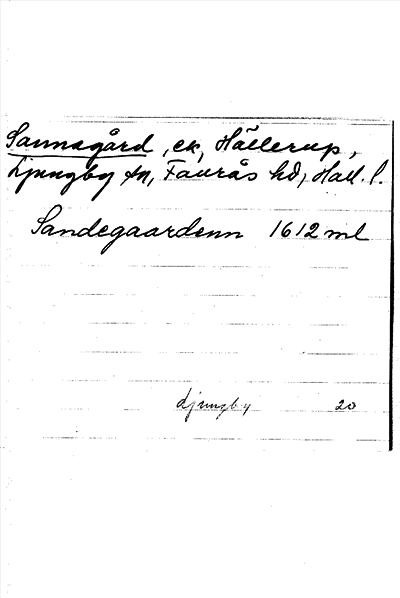 Sannagård, ek, Hällerup,
Ljungby sn, Faurås hd, Hall. l.
Sandegaardenn 1612 ml
Ljungby 20